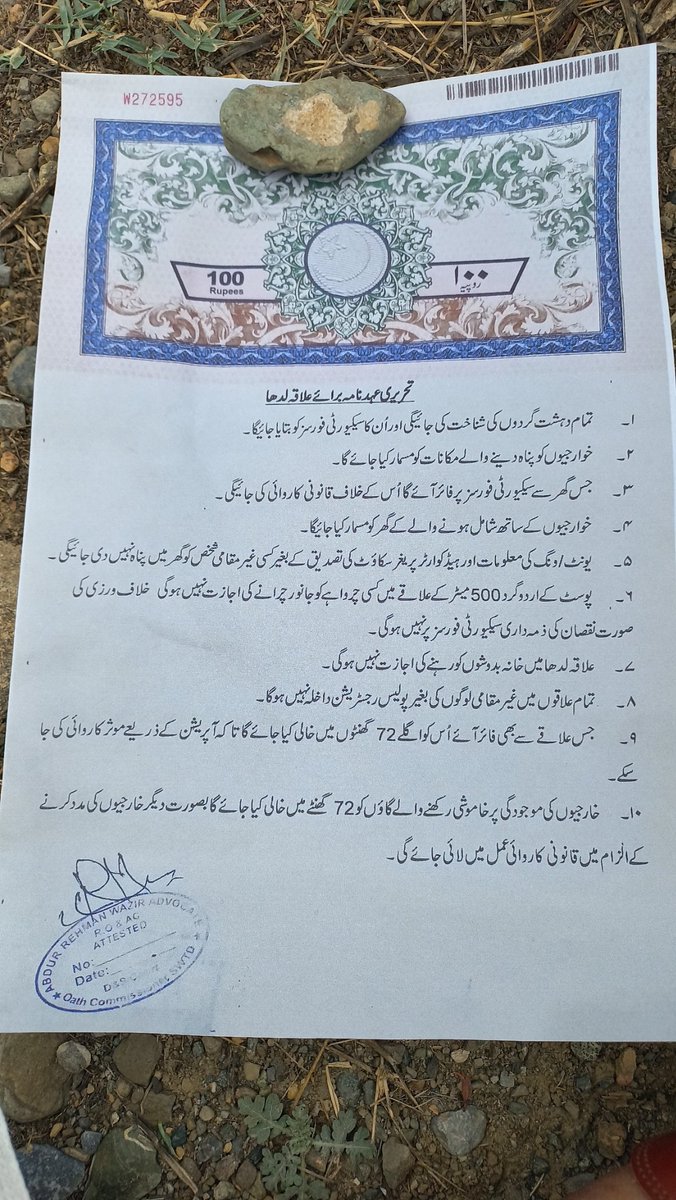 W272595
100
Rupees
۱۰۰
روپیہ
تحریری عہد نامہ برائے علاقہ لدھا
۱۔ تمام دہشت گردوں کی شناخت کی جائیگی اور اُن کا سیکیورٹی فورسز کو بتایا جائیگا۔
۲۔ خوارجیوں کو پناہ دینے والے مکانات کو مسمار کیا جائے گا۔
۳۔ جس گھر سے سیکیورٹی فورسز پر فائر آئے گا اُس کے خلاف قانونی کاروائی کی جائیگی۔
۴۔ خوارجیوں کے ساتھ شامل ہونے والے کے گھر کو مسمار کیا جائیگا۔
۵۔ یونٹ/ونگ کی معلومات اور ہیڈ کوارٹر پر یغر سکاؤٹ کی تصدیق کے بغیر کسی غیر مقامی شخص کو گھر میں پناہ نہیں دی جائیگی۔
۶۔ پوسٹ کے اردو گرد 500 میٹر کے علاقے میں کسی چرواہے کو جانور چرانے کی اجازت نہیں ہوگی خلاف ورزی کی
صورت نقصان کی ذمہ داری سیکیورٹی فورسز پر نہیں ہوگی۔
۷۔ علاقہ لدھا میں خانہ بدوشوں کو رہنے کی اجازت نہیں ہوگی۔
۸۔ تمام علاقوں میں غیر مقامی لوگوں کی بغیر پولیس رجسٹریشن داخلہ نہیں ہوگا۔
۹۔ جس علاقے سے بھی فائر آئے اُس کو اگلے 72 گھنٹوں میں خالی کیا جائے گا تاکہ آپریشن کے ذریعے موثر کاروائی کی جا
سکے۔
۱۰۔ خارجیوں کی موجودگی پر خاموشی رکھنے والے گاؤں کو 72 گھنٹے میں خالی کیا جائے گا بصورت دیگر خارجیوں کی مدد کرنے
کے الزام میں قانونی کاروائی عمل میں لائی جائے گی۔
ABDUR REHMAN WAZIR ADVOCATE
ATTESTED
No:
Date:
Oath Commissioner SWTD